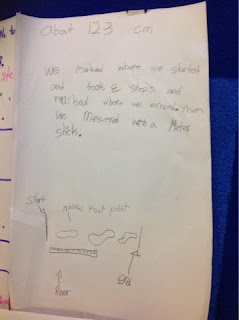 About 123 cm
We marked where we started
and took 2 steps and
marked where we ended. Then
we Mesuered with a Meter
sticks.
Start
Foot print
end